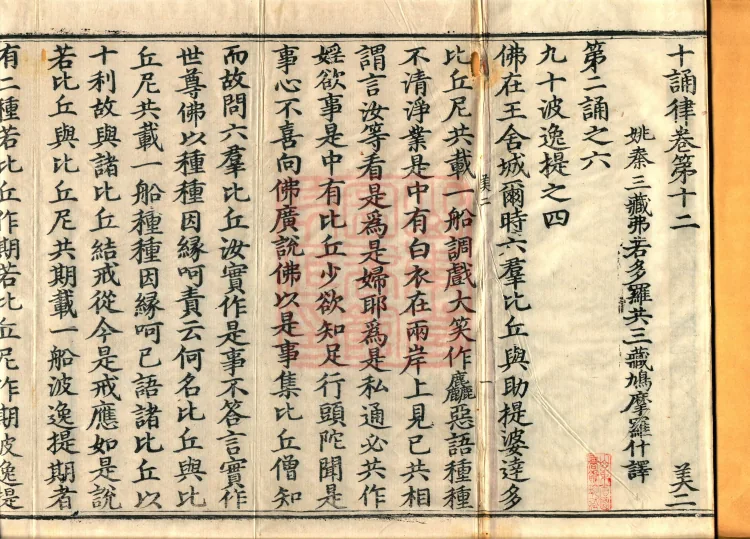 十誦律卷第十二 美二
姚秦三藏弗若多羅共三藏鳩摩羅什譯
第二誦之六
九十波逸提之四
佛在王舍城爾時六羣比丘與助提婆達多
美二
比丘尼共載一船調戲大笑作麤惡語種種
不清淨業是中有白衣在兩岸上見已共相
謂言汝等看是爲是婦耶爲是私通必共作
婬欲事是中有比丘少欲知足行頭陀聞是
事心不喜向佛廣說佛以是事集比丘僧知
而故問六羣比丘汝實作是事不答言實作
世尊佛以種種因緣呵責云何名比丘與比
丘尼共載一船種種因緣呵已語諸比丘以
十利故與諸比丘結戒從今是戒應如是說
若比丘與比丘尼共期載一船波逸提期者
有二種若比丘作期若比丘尼作期波逸提